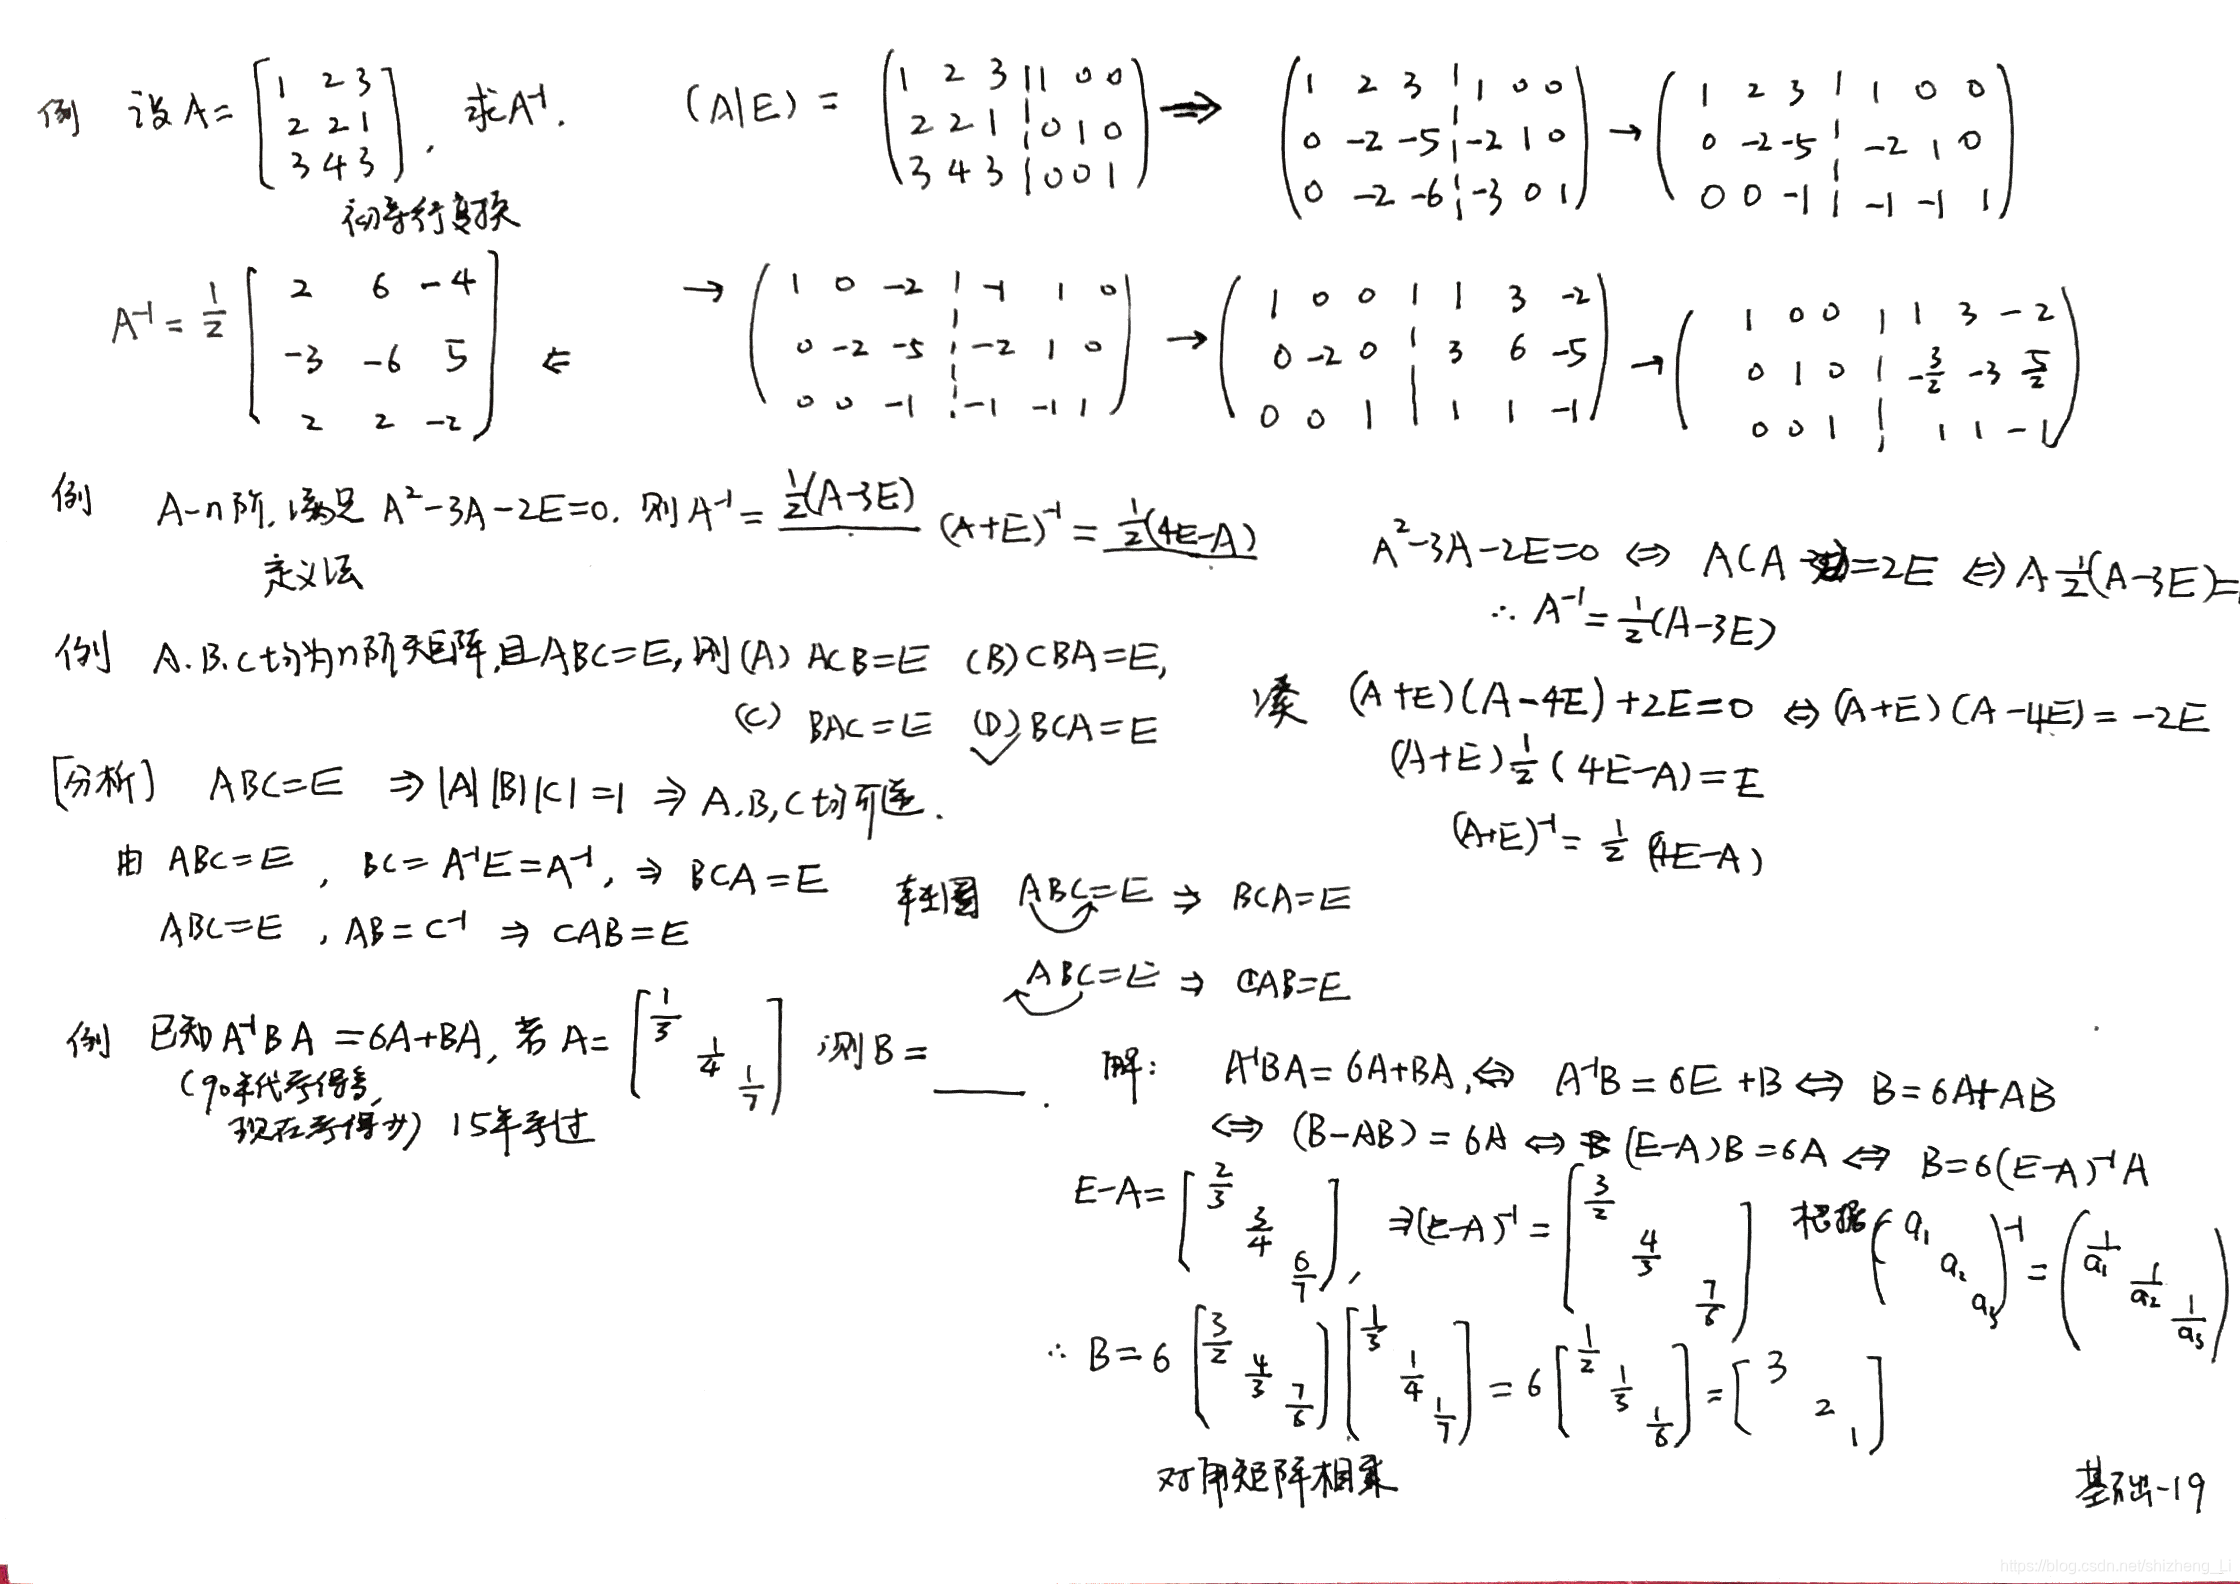 例 设A= [1 2 3; 2 2 1; 3 4 3], 求A⁻¹. (A|E) = (1 2 3 | 1 0 0; 2 2 1 | 0 1 0; 3 4 3 | 0 0 1) ⇒ (1 2 3 | 1 0 0; 0 -2 -5 | -2 1 0; 0 -2 -6 | -3 0 1) → (1 2 3 | 1 0 0; 0 -2 -5 | -2 1 0; 0 0 -1 | -1 -1 1)
初等行变换
A⁻¹ = 1/2 [2 6 -4; -3 -6 5; 2 2 -2] ⇐ → (1 0 -2 | -1 1 0; 0 -2 -5 | -2 1 0; 0 0 -1 | -1 -1 1) → (1 0 0 | 1 3 -2; 0 -2 0 | 3 6 -5; 0 0 1 | 1 1 -1) → (1 0 0 | 1 3 -2; 0 1 0 | -3/2 -3 5/2; 0 0 1 | 1 1 -1)
例 A-n阶,满足 A²-3A-2E=0. 则A⁻¹ = 1/2(A-3E) (A+E)⁻¹ = 1/2(4E-A)
定义法
A²-3A-2E=0 ⇔ A(A-3E)=2E ⇔ A 1/2(A-3E)=
∴ A⁻¹ = 1/2(A-3E)
凑 (A+E)(A-4E)+2E=0 ⇔ (A+E)(A-4E) = -2E
(A+E) 1/2 (4E-A) = E
(A+E)⁻¹ = 1/2 (4E-A)
例 A.B.C均为n阶矩阵,且ABC=E, 则(A) ACB=E (B) CBA=E,
(C) BAC=E (D) BCA=E
[分析] ABC=E ⇒ |A||B||C|=1 ⇒ A.B,C均可逆.
由 ABC=E , BC = A⁻¹E = A⁻¹, ⇒ BCA=E
ABC=E , AB = C⁻¹ ⇒ CAB=E
转圈 ABC=E ⇒ BCA=E
ABC=E ⇒ CAB=E
例 已知A⁻¹BA = 6A+BA, 若A= [1/3 1/4 1/7] 则B = ____.
(90年代考得多,
现在考得少) 15年考过
解: A⁻¹BA = 6A+BA, ⇔ A⁻¹B = 6E+B ⇔ B=6A+AB
⇔ (B-AB) = 6A ⇔ (E-A)B = 6A ⇔ B=6(E-A)⁻¹A
E-A= [2/3 3/4 6/7], ⇒ (E-A)⁻¹ = [3/2 4/3 7/6] 根据 (a₁ a₂ a₃)⁻¹ = (1/a₁ 1/a₂ 1/a₃)
∴ B=6 [3/2 4/3 7/6] [1/3 1/4 1/7] = 6 [1/2 1/3 1/6] = [3 2 1]
对角矩阵相乘
基础-19
https://blog.csdn.net/shizheng_Li